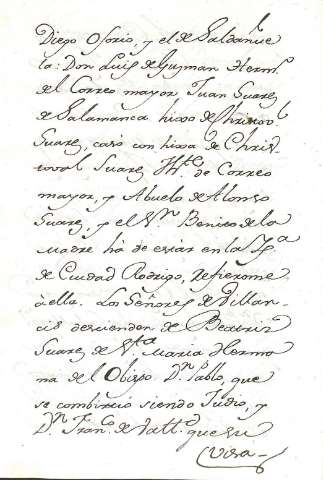 Diego Osorio, y el de Saldañue
la: Don Luis de Guzman Herm.º
del Correo mayor Juan Suarez
de Salamanca hixo de Christov.l
Suarez, casó con hixa de Chris
toval Suarez Hte. de Correo
mayor, y Abuelo de Alonso
Suarez, y el Vn. Benito de la
Madre ha de estar en la Ygª
de Ciudad Rodrigo, refierome
à ella. Los Señores de Villan-
cis descienden de Beatriz
Suarez de Sta. Maria Herma
na del Obispo Dn. Pablo, que
se combirtió siendo Judio, y
Dn. Franco. de Vallº que su
vivia-